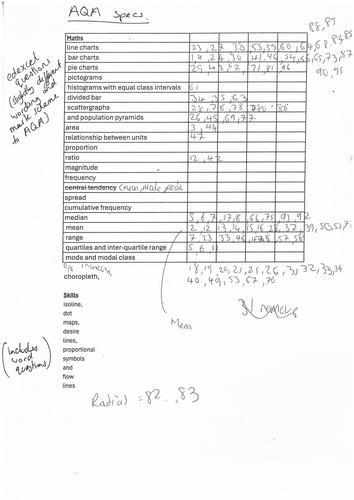 AQA Specs.
88, 89
Edexcel questions (slightly different wording and mark scheme to AQA)
Maths
line charts 23, 27, 30 53, 59, 60, 64, 68, 84, 85
bar charts 1, 4, 24, 30 41, 46, 54, 55, 65, 73, 87
pie charts 29, 43, 52, 71, 81, 86
95, 96
pictograms
histograms with equal class intervals 61
divided bar 34, 35, 63
scattergraphs 28, 76, 78, 80, 86
and population pyramids 26, 45, 69, 77
area 3, 44
relationship between units 47
proportion
ratio 12, 42
magnitude
frequency
central tendency (mean, mode,
spread
cumulative frequency
median 5, 6, 7, 17, 18, 66, 75, 91, 92
mean 2, 12, 13, 14, 15, 16, 28, 32, 39, 50, 53, 71
range 7, 23, 33, 46, 57, 58
quartiles and inter-quartile range 5, 6, 11
mode and modal class
% increase 18, 19, 20, 21, 25, 26, 31, 32, 33, 34
choropleth, 40, 49, 53, 67, 70
Skills
isoline,
dot
maps,
desire
lines,
proportional
symbols
and
flow
lines
Mean
(includes word questions)
Radial = 82, 83